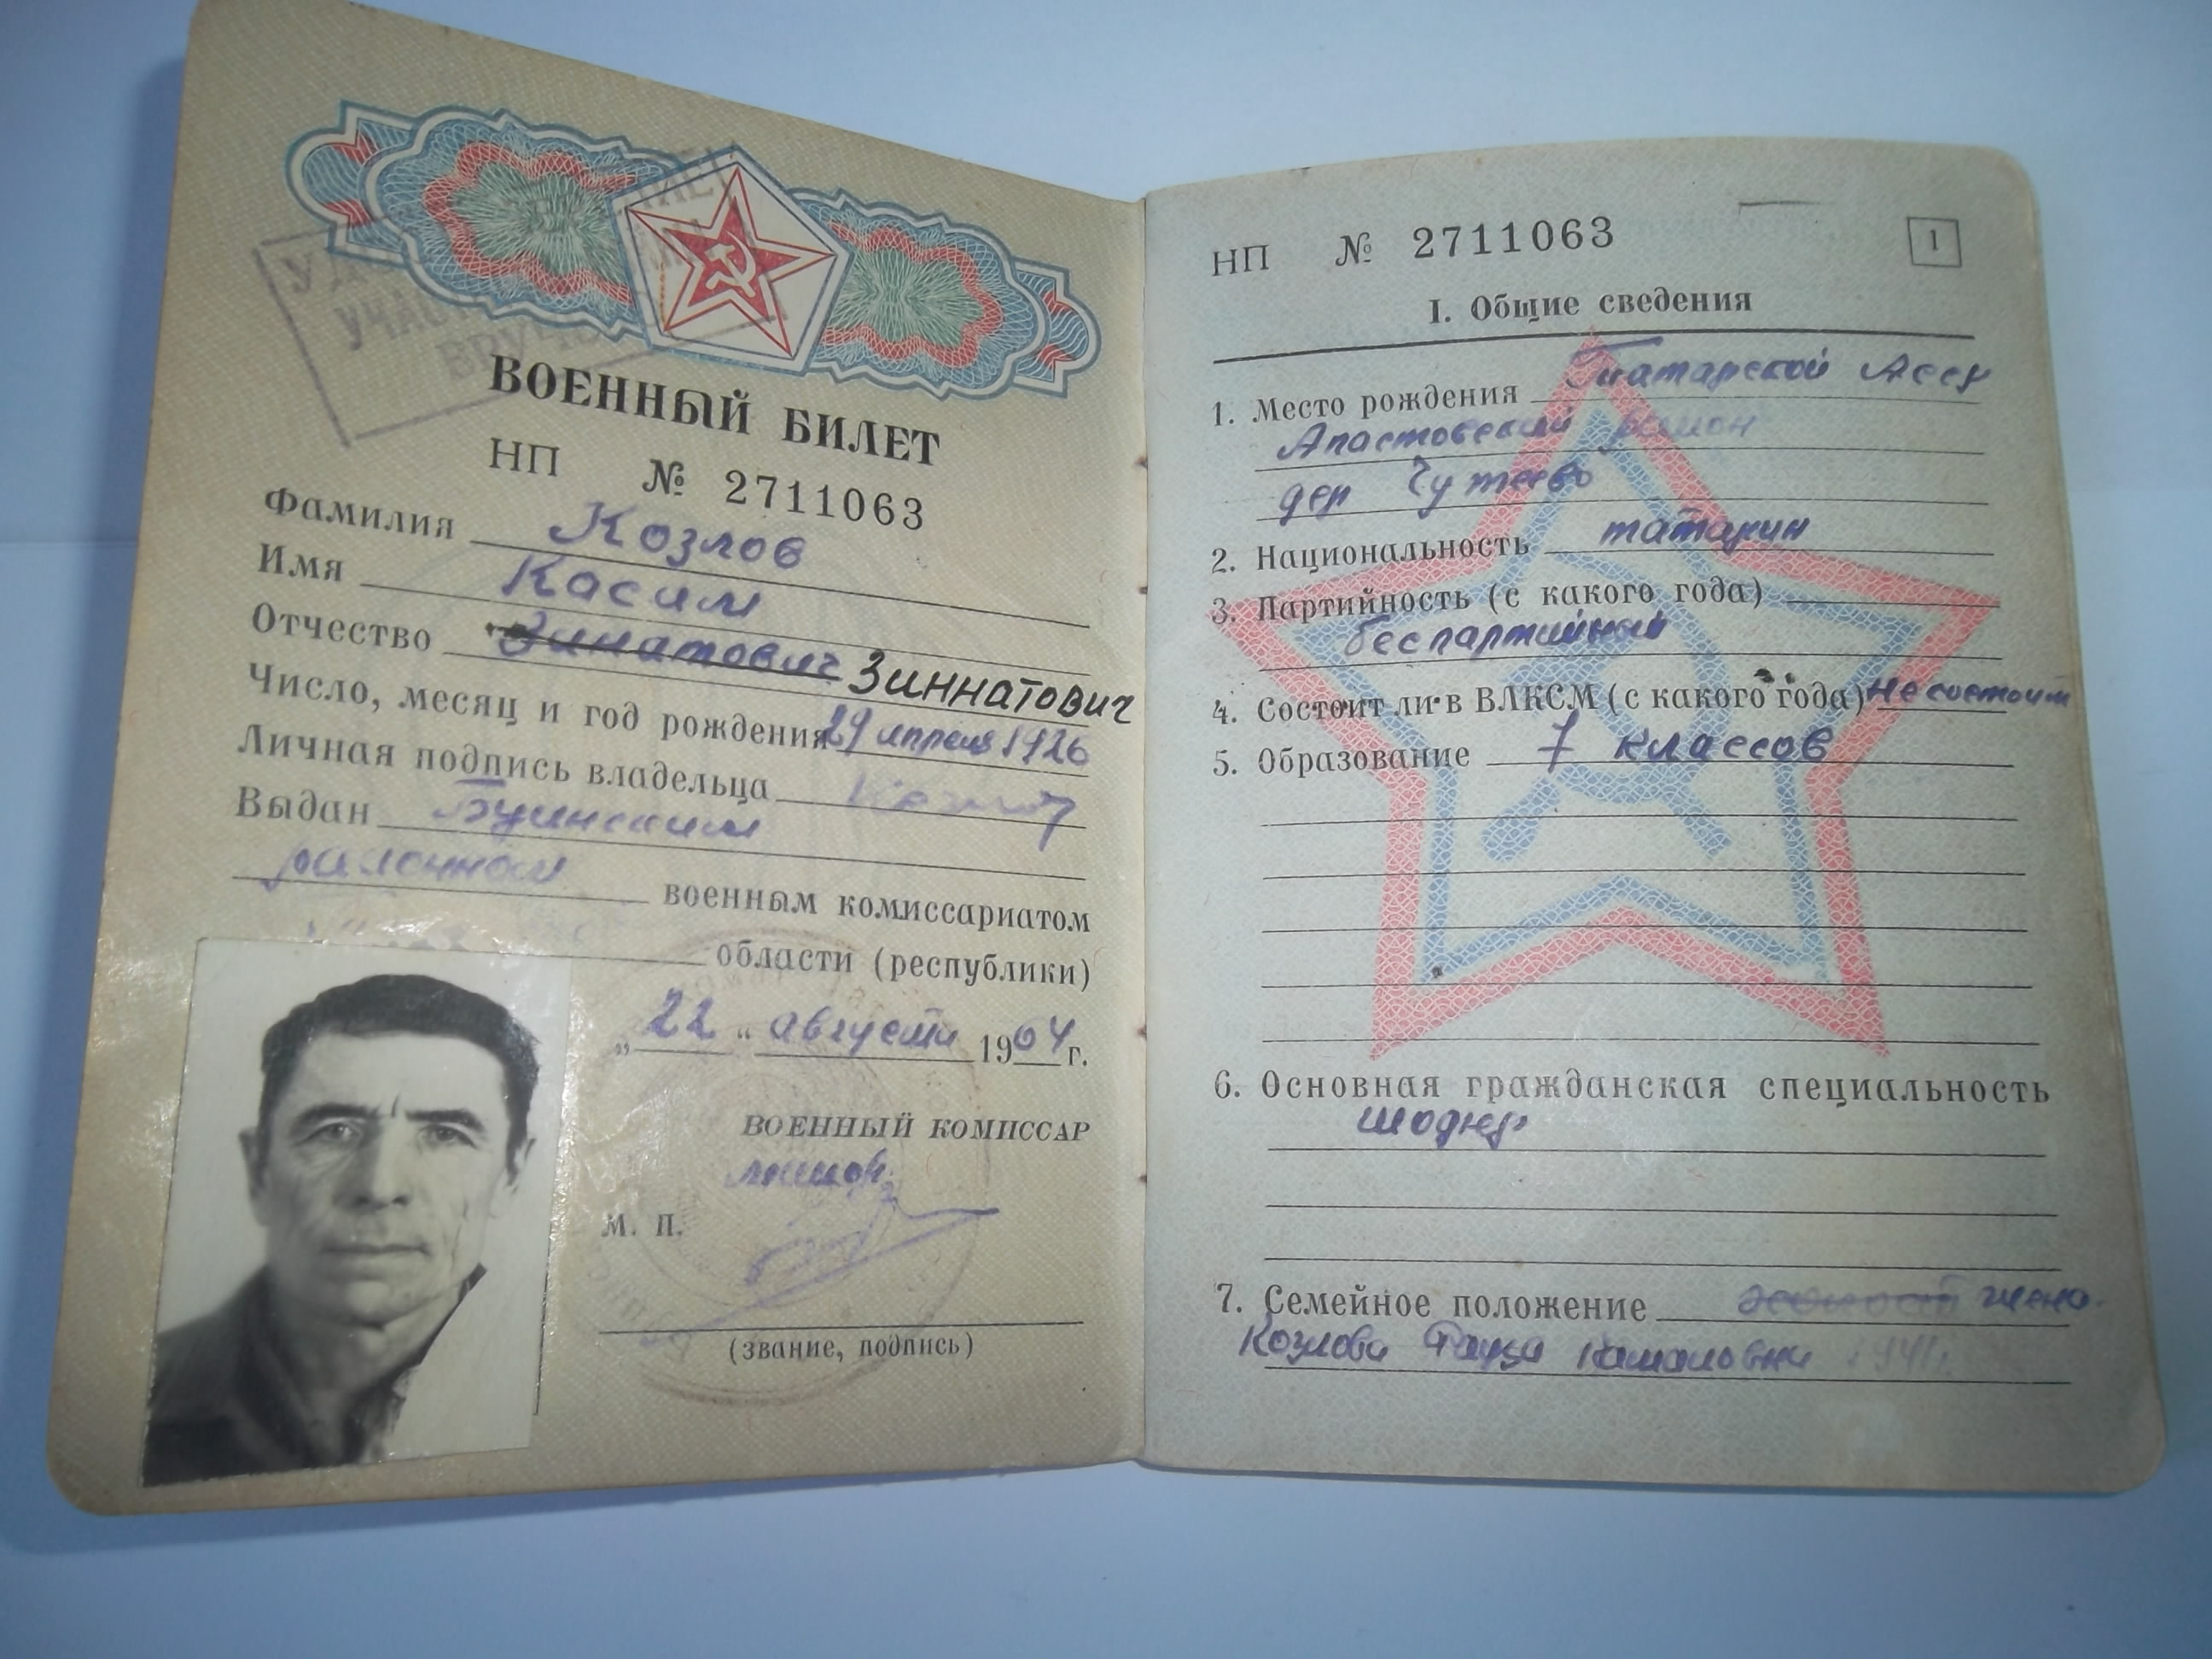 ВОЕННЫЙ БИЛЕТ
НП № 2711063
Фамилия Козлов
Имя Касим
Отчество Зинатович Зиннатович
Число, месяц и год рождения 29 апреля 1926
Личная подпись владельца
Выдан Буинским
районным военным комиссариатом
области (республики)
„22“ августа 1964 г.
ВОЕННЫЙ КОМИССАР
М. П.
(звание, подпись)
НП № 2711063
1
I. Общие сведения
1. Место рождения Татарской Асср
Апастовский район
дер Чутеево
2. Национальность татарин
3. Партийность (с какого года)
беспартийный
4. Состоит ли в ВЛКСМ (с какого года) не состоит
5. Образование 7 классов
6. Основная гражданская специальность
7. Семейное положение жена
Козлова Фауза Камаловна 1941